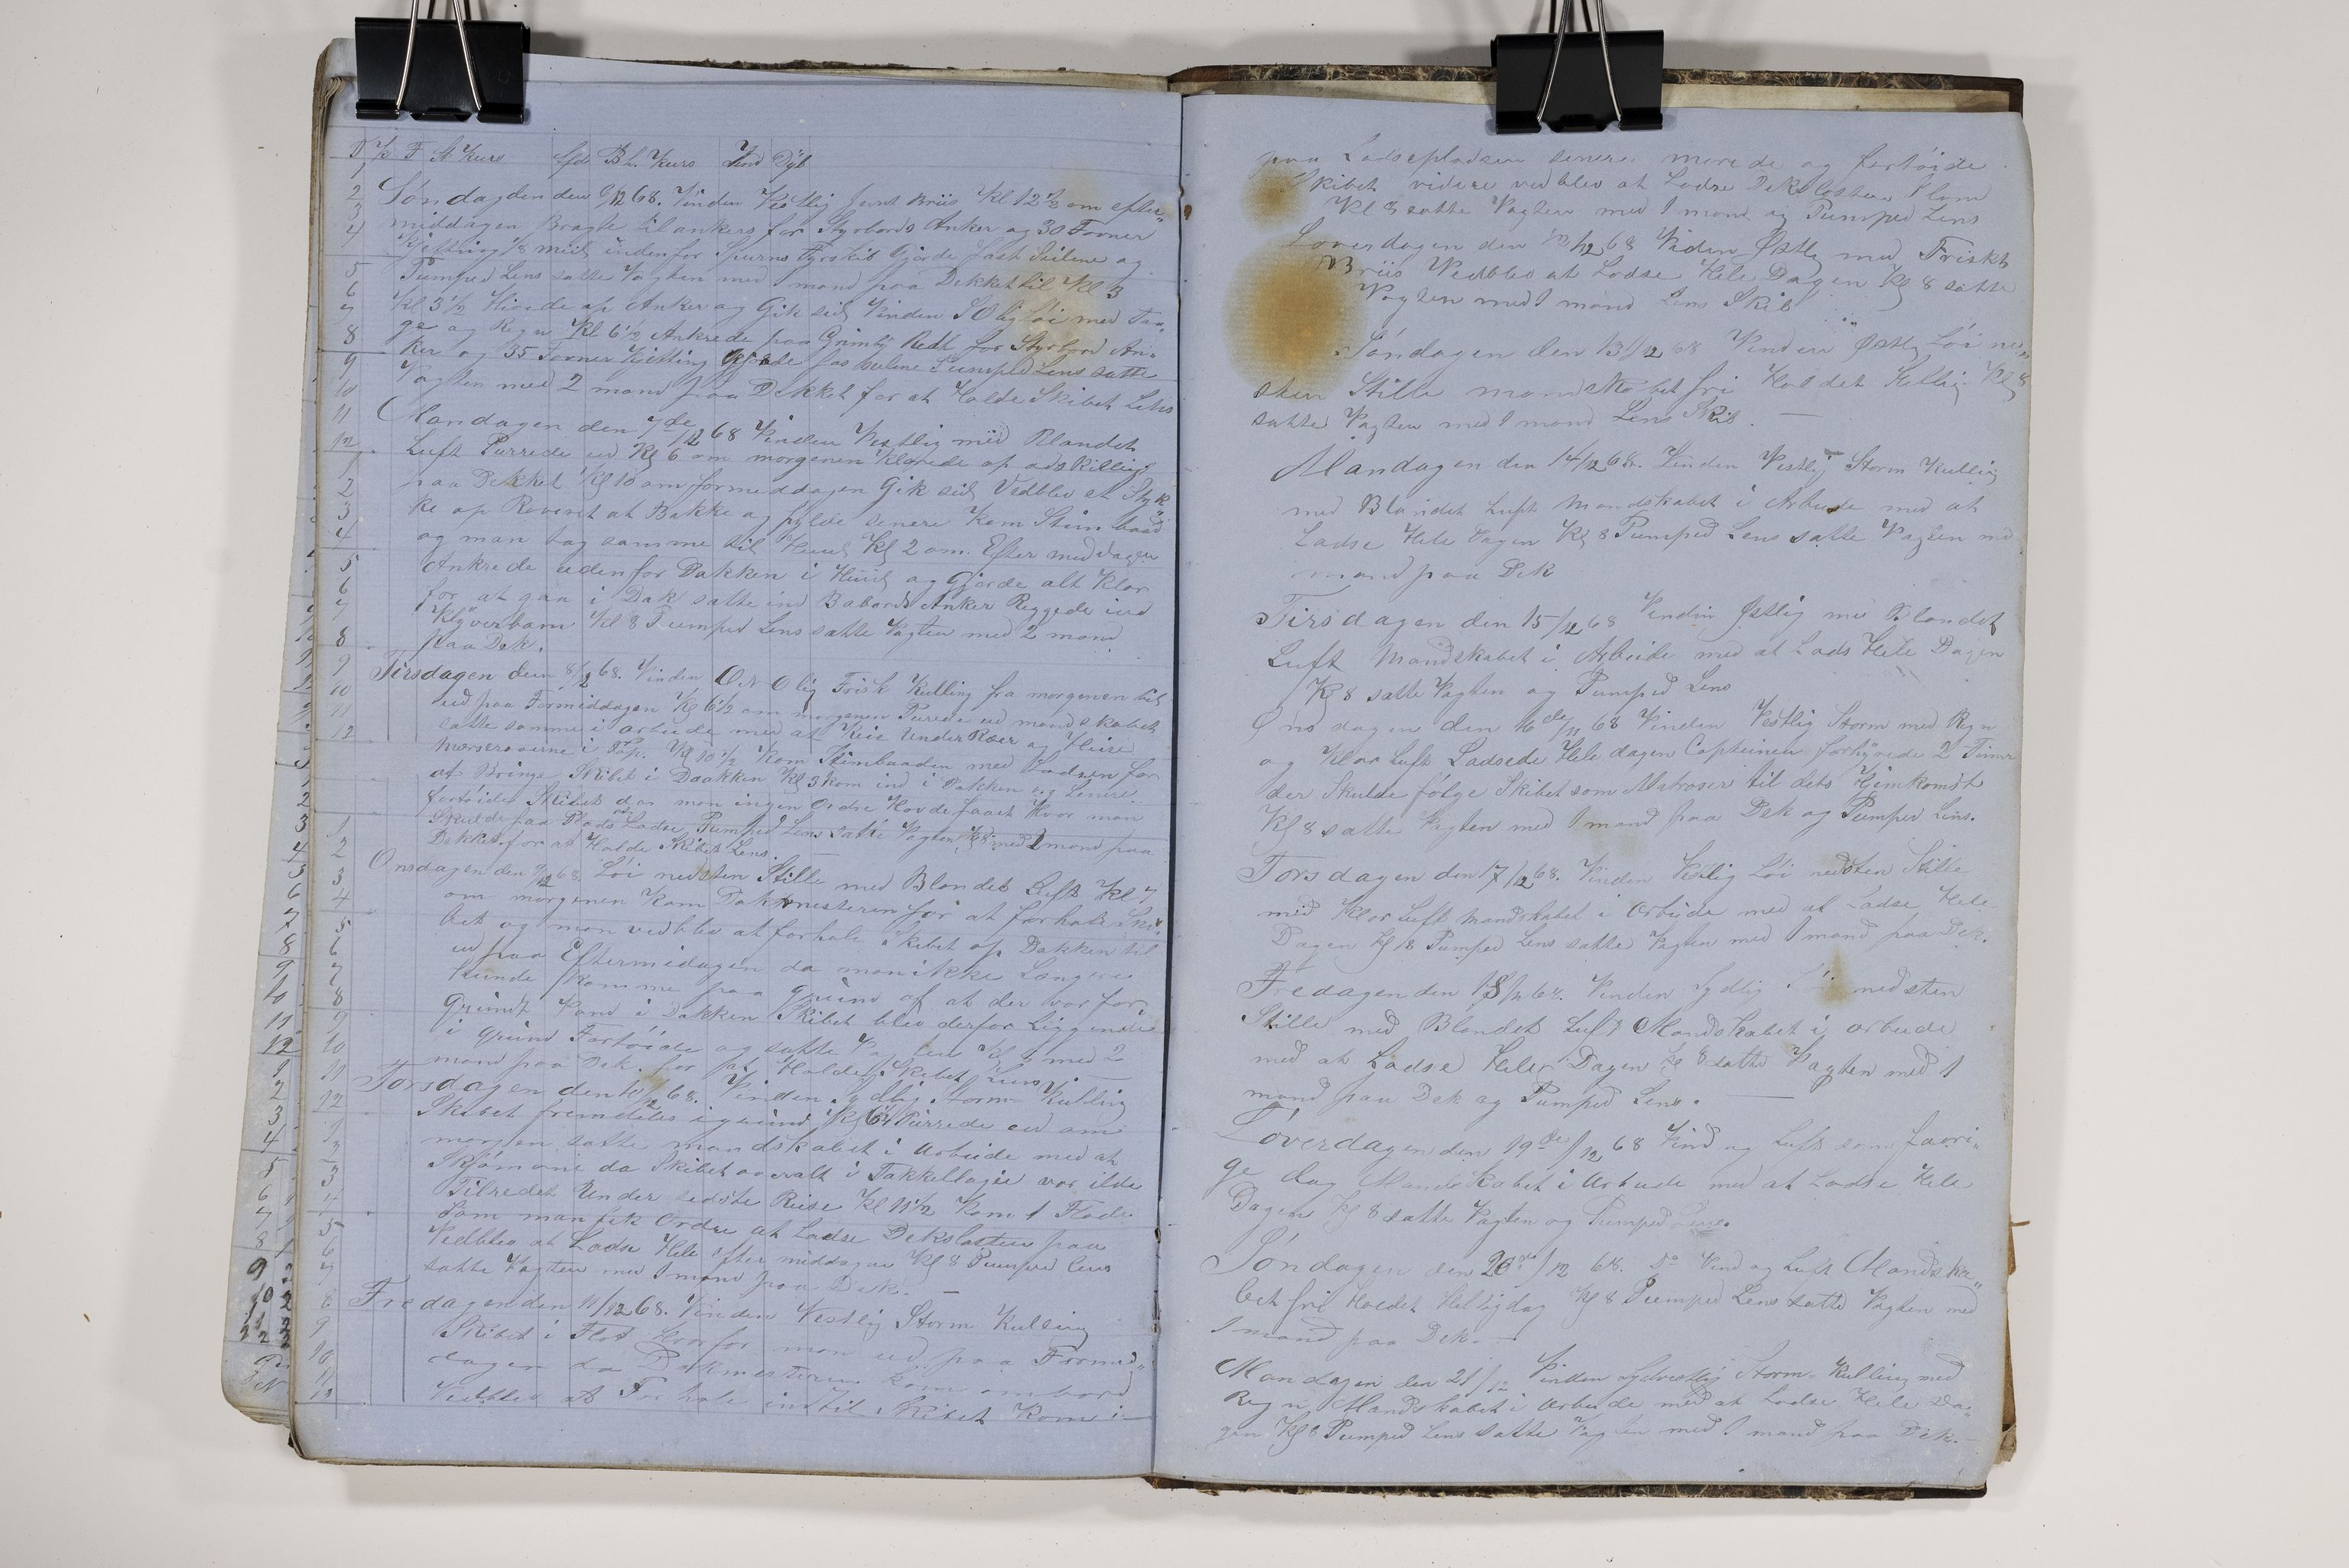 K F St. Kurs Bk. Kurs Vind Dyb
Søndag den 6/12 68. Vinden Vestlig Jevnt Briis Kl 12 1/2 om efter„
middagen Bragte til ankers for Styrbords Anker og 30 Favner
Kjetting 1/8 miil indenfor Spurns Fyrskib Gjorde fast Seilene og
Pumped Lens satte Vagten med 1 mand paa Dekket til Kl 3
Kl 3 1/2 Hivede op Anker og Gik seil Vinden SO lig Løi med Taa„
ge og Regn Kl 6 1/2 Ankrede paa Grimbÿ Redt for Styrbord An„
ker og 35 Favner Kjetting Gjorde fas seilene Pumped Lens satte
Vagten med 2 mand paa Dekket for at Holde Skibet Lens
Mandagen den 7de/12 68 Vinden Vestlig med Blandet
Luft Purrede ud Kl 6 om morgenen Klarede op adskilling
paa Dekket Kl 10 om formeddagen Gik seil Vedblev at Styk„
ke op Reveret at Bakke og fylde senere kom Stimbaad
og man tog samme til Huul Kl 2 om Efter meddagen
Ankrede udenfor Dakken i Huul og Gjorde alt klar
for at gaa i Dak satte ind Babords Anker Reggede ind
Klÿverbam Kl 8 Pumped Lens satte Vagten med 2 mand
paa Dek.
Tirsdagen den 8/12 68. Vinden ONO lig Frisk Kulling fra morgenen til
ud paa Formiddagen Kl 6 1/2 om morgenen Purrede ud mandskabet
satte samme i arbeide med at Keie Under Ræer og Heise
mersraaerne i Kl 10 1/2 Kom Stimbaaden med Lodsen for
at Bringe Skibet i Daakken Kl 3 kom ind i Dakken og Senere
fortøiedes Skibet der man ingen Ordre Havde faaet Hvor man
skulde faa Plads Ladse Pumped Lens satte Vagten Kl 8 med 1 mand paa
Dekket for at Holde Skibet Lens.
Onsdagen den 9/12 68 Løi nedsten Stille med Blandet Luft Kl 7
om morgenen Kom Dakmesteren for at forhale Ski„
bet og man vedblev at forhale Skibet op Dakken til
ud paa Eftermidagen da man ikke Længere
kunde komme paa grund af at der var for
Grundt Vand i Dakken Skibet blev derfor Liggende
i Grund Fortøiede og satte Vagten Kl 8 med 2
mand paa Dek. for at Holde Skibet Lens
Torsdagen den 10/12 68. Vinden Sydlig Storm Kulling
Skibet fremdeles i grund Kl 6 1/2 Purrede ud om
morgen satte mandskabet i Arbeide med at
Skjømane da Skibet overalt i Takkellagie var ilde
Tilredet Under sedste Reise Kl 11 1/2 Kom 1 Flade
Som man fik Ordre at Ladse Dekslasten paa
Vedblev at Ladse Hele efter middagen Kl 8 Pumped Lens
satte Vagten med 1 mand paa Dek. —
Fredagen den 11/12 68. Vinden Vestlig Storm Kulling
Skibet i Flot Hvorfor man ud paa Formid„
dagen da Dakmesteren kom ombord
Vedblev at Forhale indtil Skibet Kom i
paa Ladsepladsen senere morede og fortøiede
Skibet videre vedblev at Ladse Dekslasten I lam
Kl 8 satte Vagten med 1 mand og Pumped Lens
Løverdagen den 12/12 68 Vinden Østlig med Friskt
Briis Vedblev at Ladse Hele Dagen Kl 8 satte
Vagten med 1 mand Lens Skib
Søndagen den 13/12 68 Vinden Østlig Løi ned„
sten Stille mandskabet fri Holdet Hellig Kl 8
satte Vagten med 1 mand Lens Skib. —
Mandagen den 14/12 68. Vinden Vestlig Storm Kulling
med Blandet Luft Mandskabet i Arbeide med at
Ladse Hele Dagen Kl 8 Pumped Lens satte Vagten med
mand paa Dek
Tirsdagen den 15/12 68 Vinden Østlig med Blandet
Luft Mandskabet i Arbeide med at Lads Hele Dagen
Kl 8 satte Vagten og Pumped Lens
Onsdagen den 16de/11 68 Vinden Vestlig Storm med Regn
og Klar Luft Ladsede Hele dagen Capteinen forhÿrede 2
der Skulde følge Skibet som Matroser til dets Hjemkomst
Kl 8 satte Vagten med 1 mand paa Dek og Pumped Lens.
Torsdagen den 17/12 68. Vinden Løi nedsten Stille
med Klar Luft Mandskabet i Arbeide med at Ladse Hele
Dagen Kl 8 Pumped Lens satte Vagten med 1 mand paa Dek.
Fredagen den 18/12 68. Vinden Sydlig Løi nedsten
Stille med Blandet Luft Mandskabet i arbeide
med at Ladse Hele Dagen Kl 8 satte Vagten med 1
mand paa Dek og Pumped Lens. —
Løverdagen den 19de/12 68 Vind og Luft som faari„
ge dag Mandskabet i Arbeide med at Ladse Hele
Dagen Kl 8 satte Vagten og Pumped Lens.
Søndagen den 20de/12 68. Do Vind og Luft Mandska„
bet fri Holdet Heligdag Kl 8 Pumped Lens satte Vagten med
1 mand paa Dek. —
Mandagen den 21/12 Vinden sydvestlig Storm Kulling med
Regn Mandskabet i Arbeide med at Ladse Hele Da„
gen Kl 8 Pumped Lens satte Vagten med 1 mand paa Dek. —